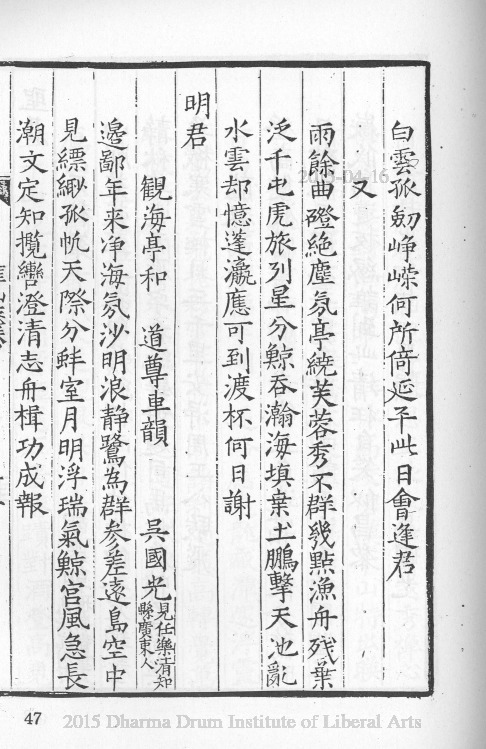 白雲孤劒崢嶸何所倚延平此日會逢君
又
雨餘曲磴絶塵氛亭繞芙蓉秀不群幾點漁舟殘葉
泛千屯虎旅列星分鯨吞瀚海填棄土鵬擊天池亂
水雲却憶蓬瀛應可到渡杯何日謝
明君
觀海亭和 道尊車韻 吳國光見任樂清知縣廣東人
邊鄙年来净海氛沙明浪静鷺為群参差遠島空中
見縹緲孤帆天際分蚌室月明浮瑞氣鯨宫風急長
潮文定知攬轡澄清志舟楫功成報
47
2015 Dharma Drum Institute of Liberal Arts